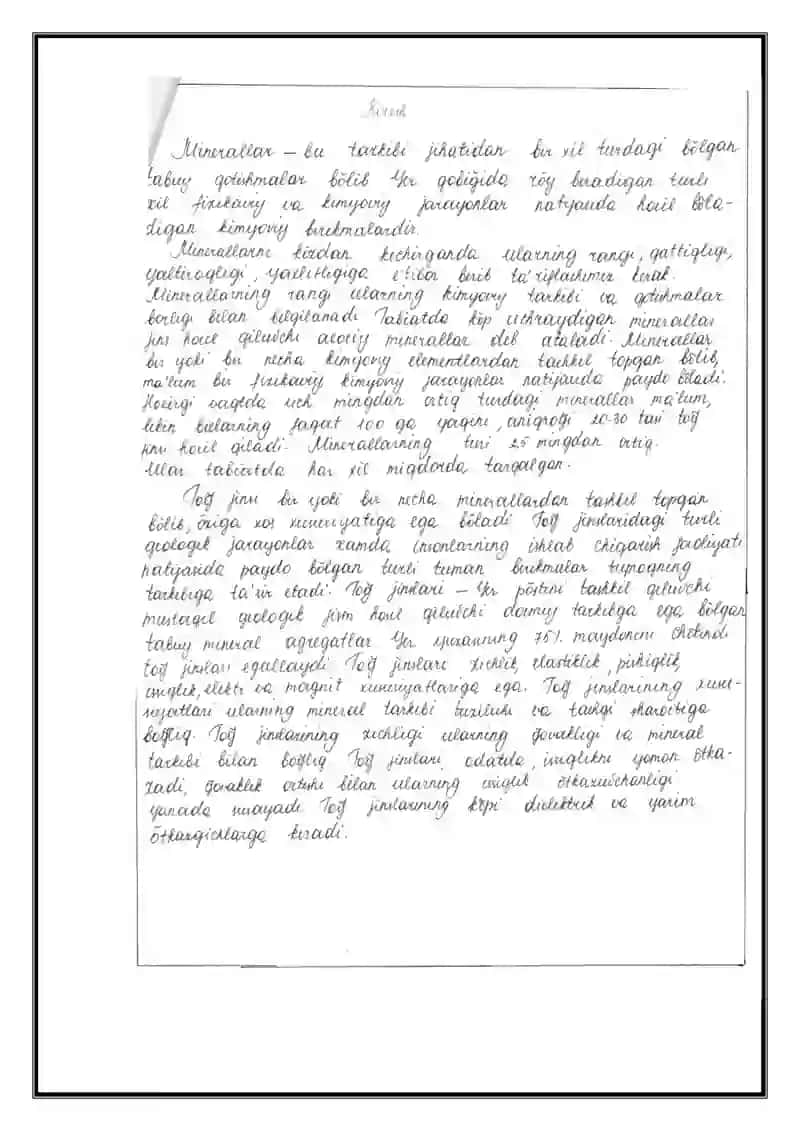 Kirish
Minerallar – bu tarkibi jihatidan bir xil turdagi bōlgan
tabiiy qotishmalar bōlib Yer qobiğida rōy beradigan turli
xil fizikaviy va kimyoviy jarayonlar natijasida hosil bōla-
digan kimyoviy birikmalardir.
Minerallarni kōzdan kechirganda ularning rangi, qattiqligi,
yaltiroqligi, yaxlitligiga e'tibor berib ta'riflashimiz kerak.
Minerallarning rangi ularning kimyoviy tarkibi va qotishmalar
borligi bilan belgilanadi Tabiatda kōp uchraydigan minerallar
jins hosil qiluvchi asosiy minerallar deb ataladi. Minerallar
bir yoki bir necha kimyoviy elementlardan tashkil topgan bōlib,
ma'lum bir fizikaviy kimyoviy jarayonlar natijasida paydo bōladi.
Hozirgi vaqtda uch mingdan ortiq turdagi minerallar ma'lum,
lekin bularning faqat 100 ga yaqini, aniqroği 20-30 tasi toğ
jinsi hosil qiladi. Minerallarning turi 25 mingdan ortiq.
Ular tabiatda har xil miqdorda tarqalgan.
Toğ jinsi bir yoki bir necha minerallardan tashkil topgan
bōlib, ōziga xos xususiyatiga ega bōladi Toğ jinslaridagi turli
geologik jarayonlar xamda insonlarning ishlab chiqarish faoliyati
natijasida paydo bōlgan turli tuman birikmalar tuproqning
tarkibiga ta'sir etadi. Toğ jinslari – Yer pōstini tashkil qiluvchi
mustaqil geologik jism hosil qiluvchi doimiy tarkibga ega bōlgan
tabiiy mineral agregatlar Yer yuzasining 75% maydonini chōkindi
toğ jinslari egallaydi Toğ jinslari zichlik, elastiklik, pishiqlik,
issiqlik, elektr va magnit xususiyatlariga ega. Toğ jinslarining xusu-
siyatlari ularning mineral tarkibi tuzilishi va tashqi sharoitiga
boğliq. Toğ jinslarining zichligi ularning ğovakligi va mineral
tarkibi bilan boğliq Toğ jinslari, odatda, issiqlikni yomon ōtka-
zadi, ğovaklik ortishi bilan ularning issiqlik ōtkazuvchanligi
yanada susayadi Toğ jinslarining kōpi dielektrik va yarim
ōtkazgichlarga kiradi.